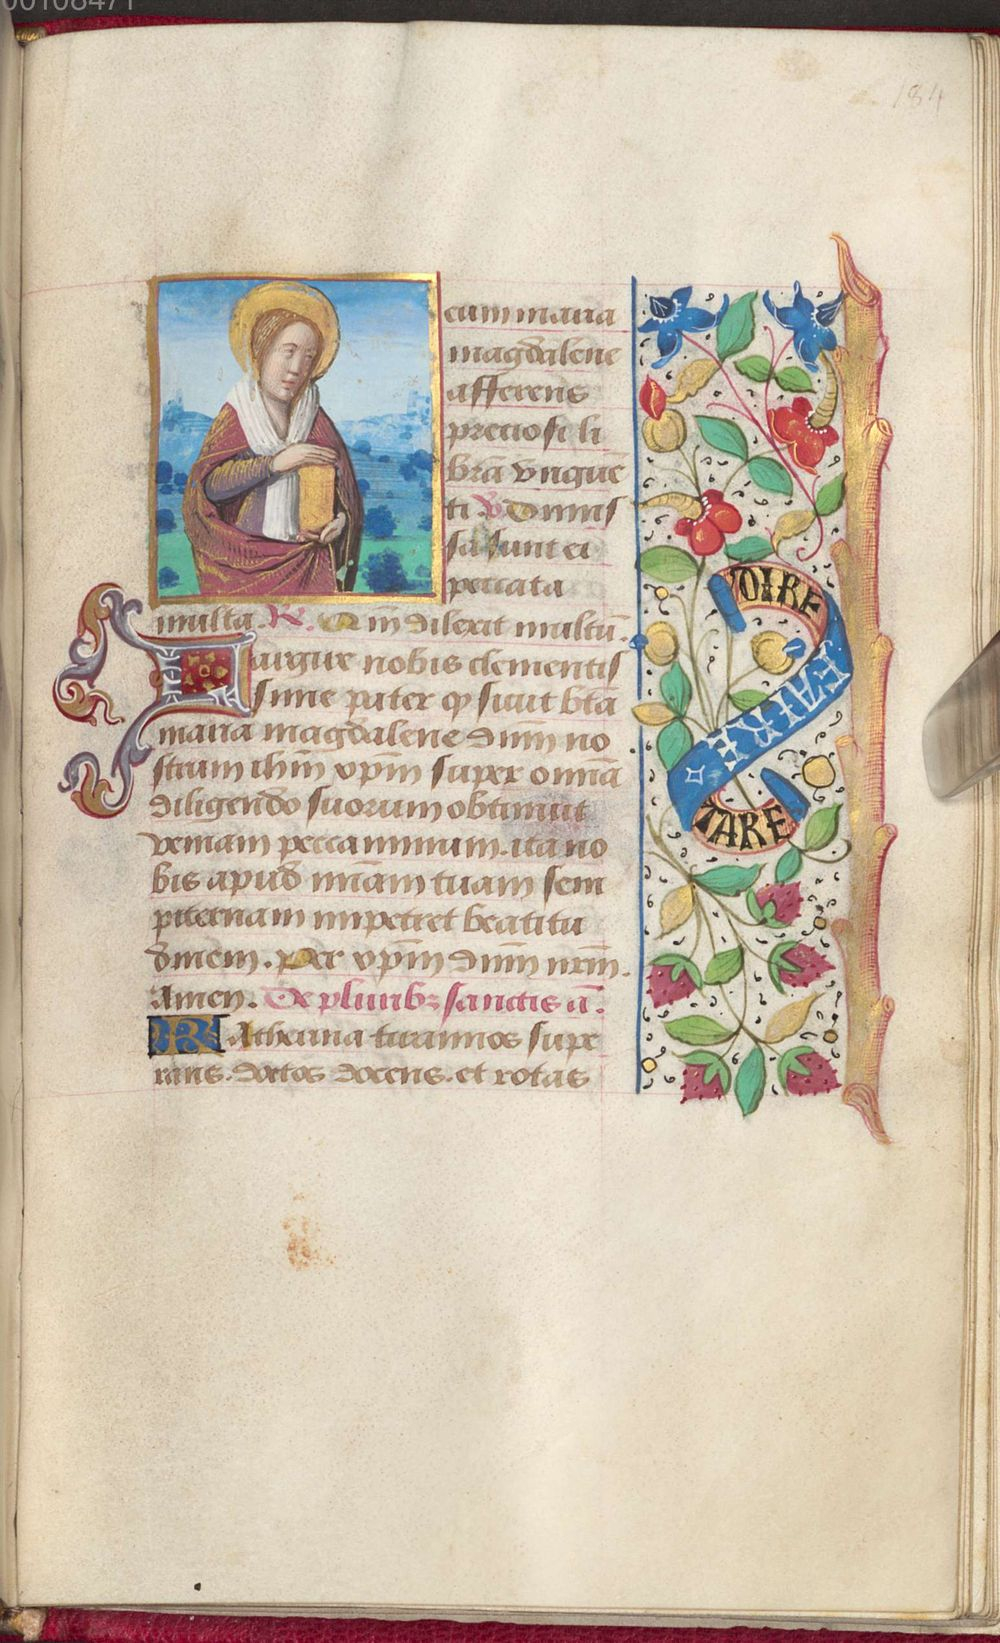 00108471
184
cum maria
magdalene
afferens
preciosi li
bra͞ vngue͞
ti. V Dimis
sa sunt ei
peccata
multa. R. Qm͞ dilexit multu͞.
Largire nobis clementis
sime pater q sicut bt͞a
maria magdalene dnm͞ no
strum ihm͞ xpm͞ super omnia
diligendo suorum obtinuit
veniam peccaminum. ita no
bis apud mi͞am tuam sem
piternam impetret beatitu
dinem. Per xpm͞ dnm͞ nrm͞.
Amen. De plurib; sanctis a͞.
KAtherina tirannos supe
rans. doctos docens. et rotas
VOIRE
FAIRE
TARE